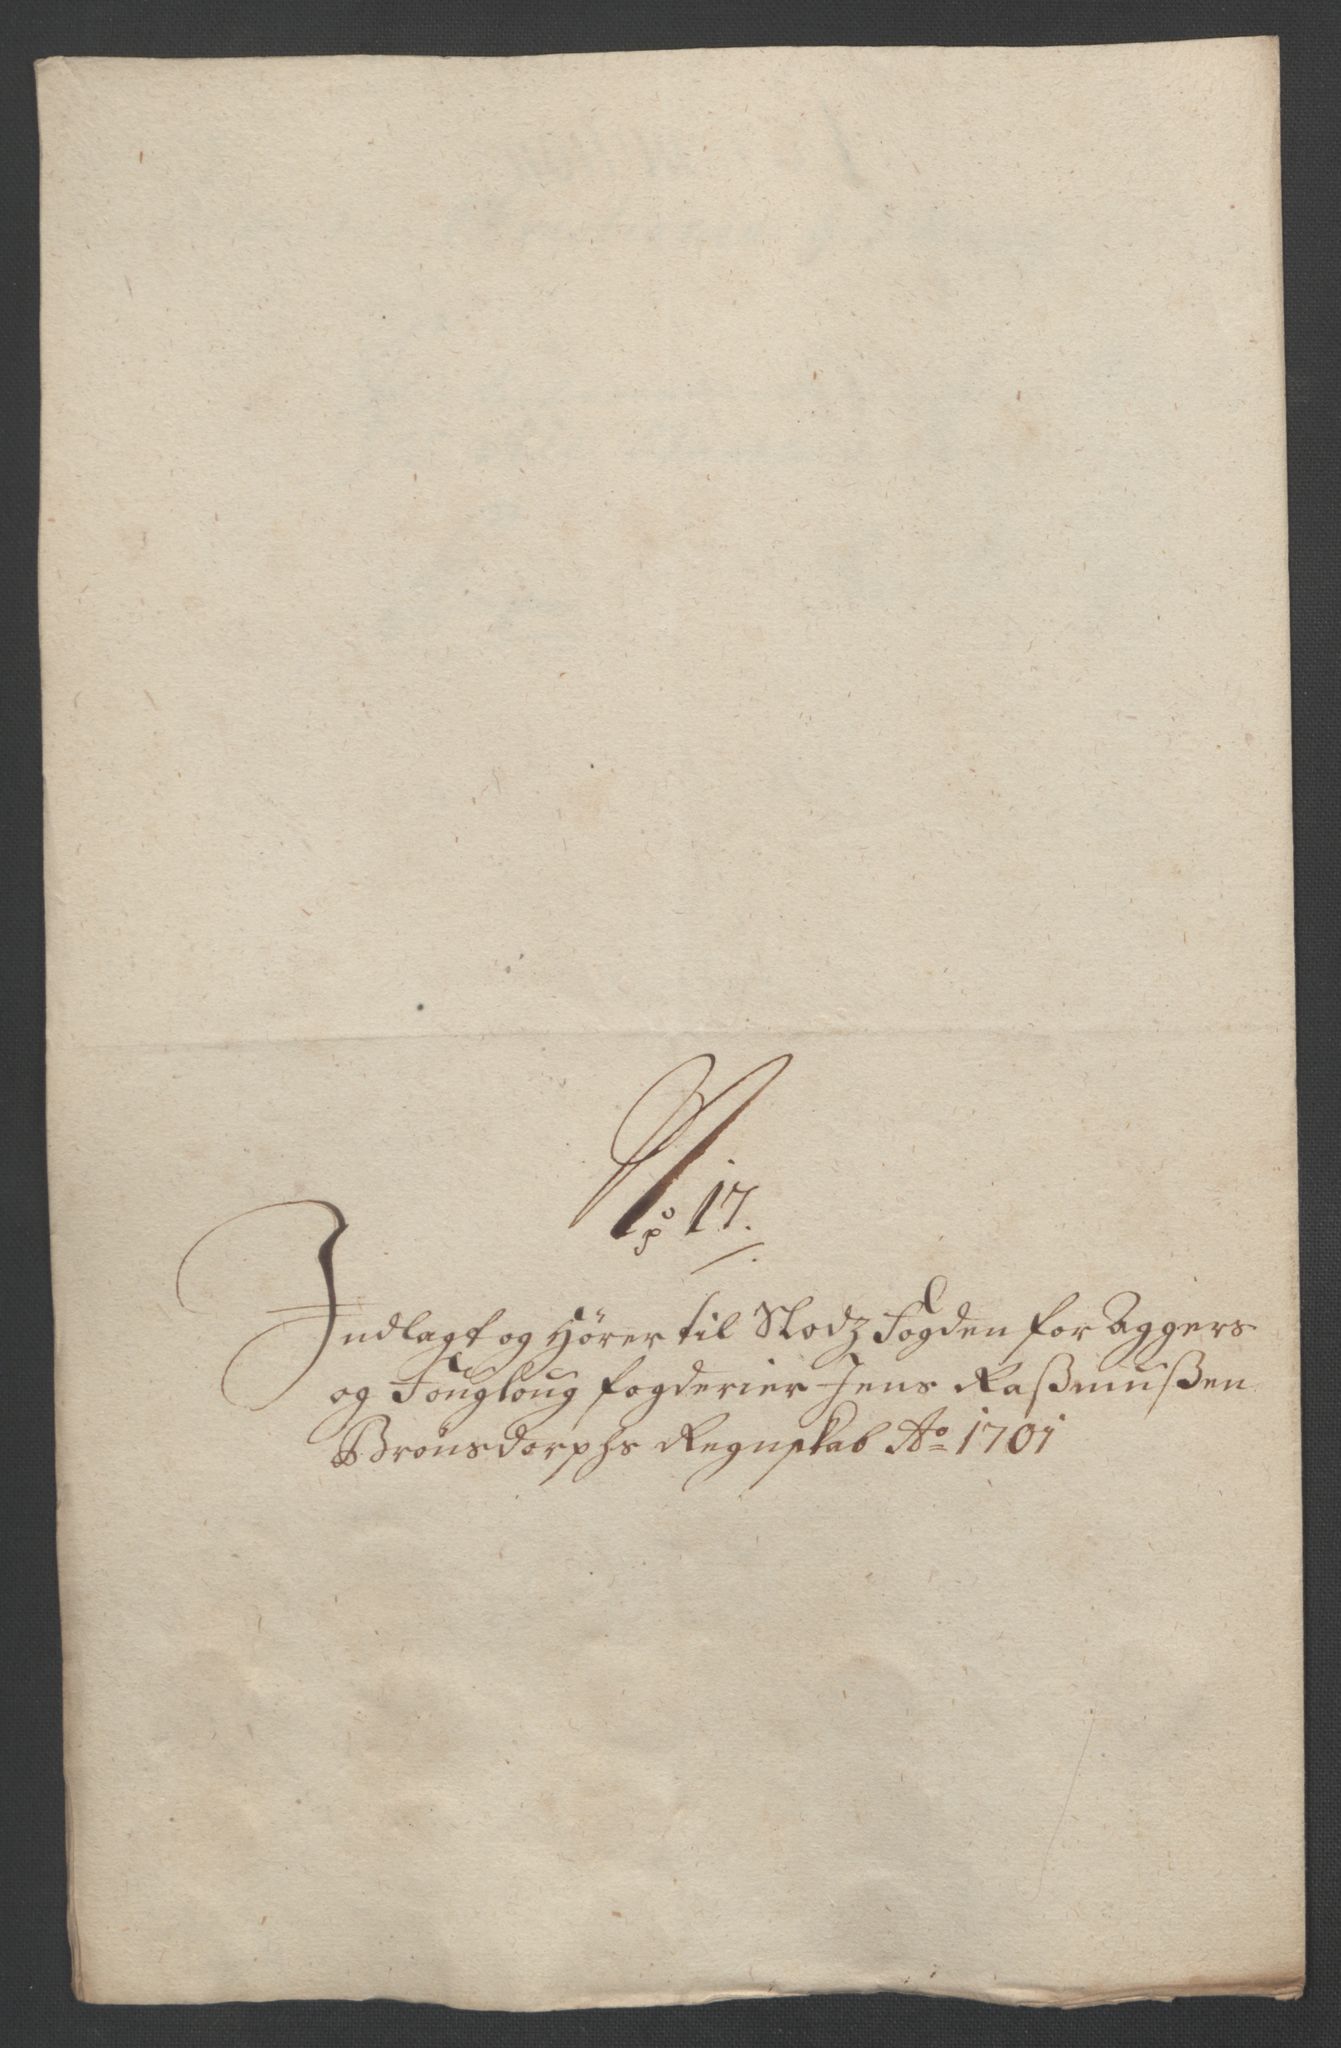 No 17.
Indlagt og Hører til Slodz Fogden for Aggers
og Fougloug fogderier Jens Raßmußen
Brønsdorphs Regnskab Ao 1701